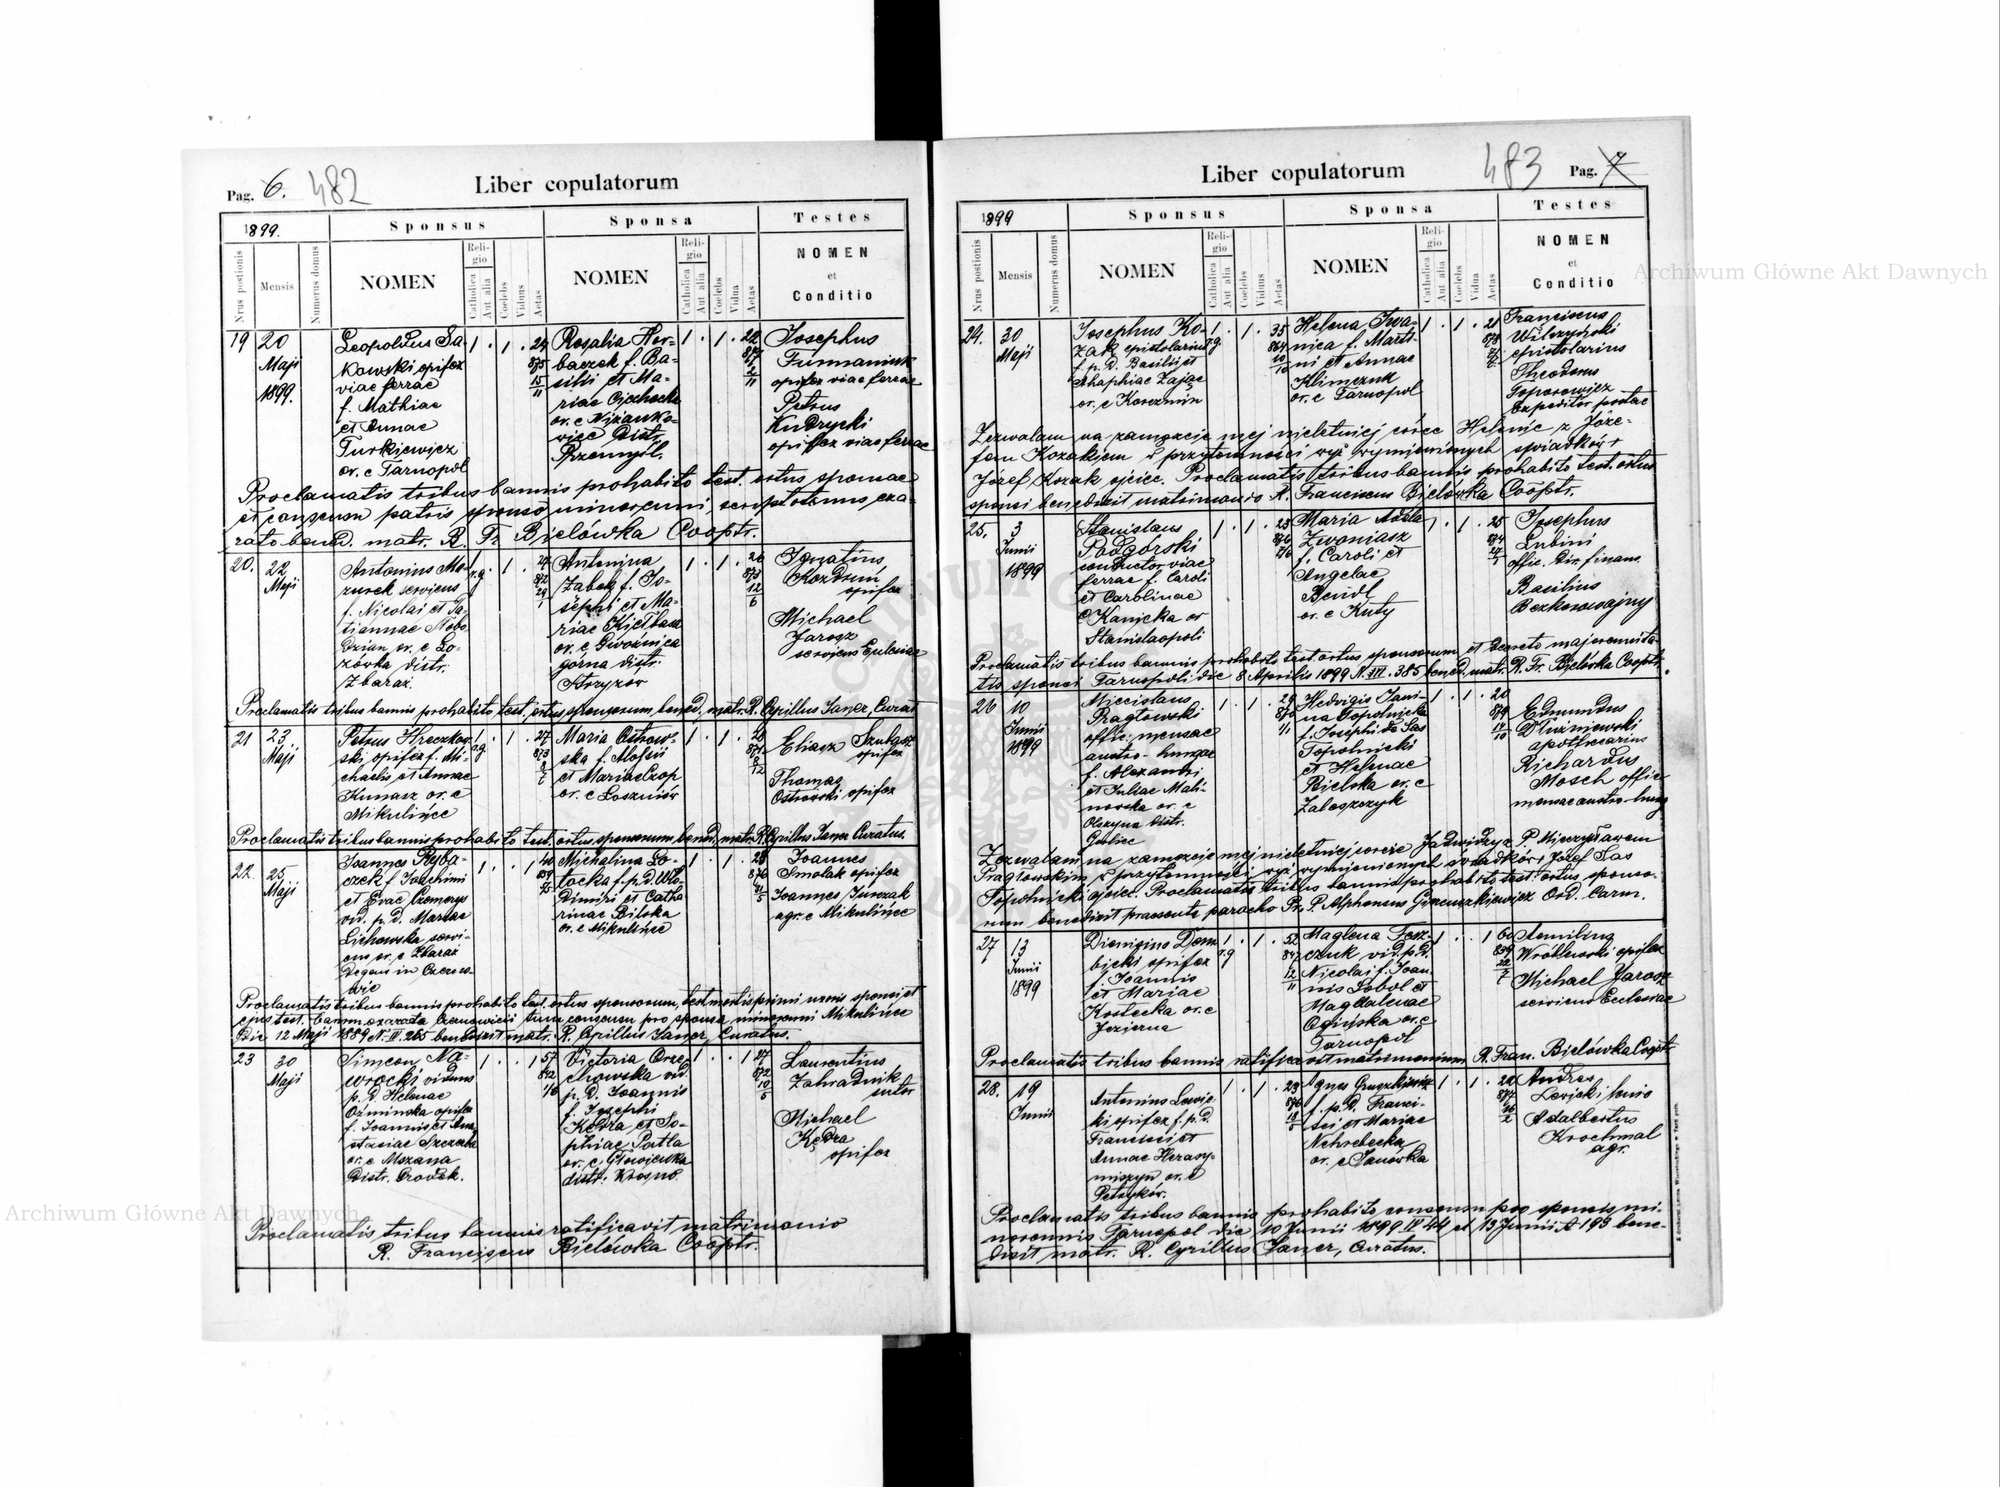 Pag. 6. 482
Liber copulatorum
1899.
Sponsus
Sponsa
Testes
Nrus postionis
Mensis
Numerus domus
NOMEN
Religio
Catholica
Aut alia
Coelebs
Viduus
Aetas
NOMEN
Religio
Catholica
Aut alia
Coelebs
Vidua
Aetas
NOMEN
et
Conditio
19
20
Maji
1899.
Leopoldus Sa-
kowski opifex
viae ferrae
f. Mathiae
et Annae
Turkiewicz
or. e Tarnopol
1 . 1 . 24
875
15
11
Rosalia Hor-
baczek f. Ba-
silii et Ma-
riae
or. e Niżanko-
wice Distr.
Przemyśl.
1 . 1 . 22
877
2
11
Josephus
Furmaniuk
opifex viae ferrae
Petrus
Kudrycki
opifex viae ferrae
Proclamatis tribus bannis prohabito test. ortus sponsae
et consensu patris sponso minorenni, scriptotenus exa-
rato bened. matr. R. Fr. Bielówka Cooptr.
20.
22
Maji
Antonius Ma-
zurek serviens
f. Nicolai et Ta-
tiannae
or. e Ło-
zówka distr.
Zbaraż.
r.g. 1 . 27
872
29
1
Antonina
Ząbek f. Jo-
sephi et Ma-
riae Kiełbasa
or. e Gwoźnica
górna distr.
Strzyżów
1 . 1 . 26
873
12
6
Ignatius
Kozdruń
opifex
Michael
Jarosz
serviens Eccleniae
Proclamatis tribus bannis prohabito test. ortus sponsorum, bened. matr. R. Cyrillus Janer, Curat.
21
23
Maji
Petrus Hreczkow-
ski, opifex f. Mi-
chaelis et Annae
Kunasz or. e
Mikulińce
1 . 1 . 27
r.g.
873
Maria Ostrow-
ska f. Aloisii
et Mariae Czop
or. e Łoszniów
1 . 1 . 28
871
8
12
Eliasz Szulgacz
opifex
Thomas
Ostrowski opifex
Proclamatis tribus bannis prohabito test. ortus sponsorum bened. matr. R. Cyrillus Janer Curatus.
22.
25
Maji
Joannes Ryba-
czek f. Joachimi
et Evae
vid. p. D. Mariae
Lichowska servi-
ens or. e Zbaraż
Degens in Czerno-
wic
1 . . 1 40
859
Michalina Ło-
tocka f. p. D. Wło-
Dimiri et Catha
rinae Bilska
or. e Mikulińce
1 . 1 . 23
876
5
Joannes
Smolak opifex
Joannes Jurczak
agr. e Mikulińce
Proclamatis tribus bannis prohabito test. ortus sponsorum, test. mortis primi uxoris sponsi et
ejus test. bann. exarata Czernowicii tum consensu pro sponsa minorenni Mikulińce
Die 12 Maji 1889 N. IV. 265 benedixit matr. R. Cyrillus Janer, Curatus.
23
30
Maji
Simeon Na-
wrocki viduus
p. D. Helenae
Oźminska opifex
f. Joannis et Ana-
stasiae Szczerba
or. e Mszana
Distr. Grodek.
1 . . 1 57
842
1/6
Victoria Orze-
chowska vid
p. D. Joannis
f. Josephi
Kędra et So-
phiae Patla
or. e Głowienka
distr. Krosno.
1 . . 1 27
872
10
5
Laurentius
Zahradnik
sutor
Michael
Kędra
opifex
Proclamatis tribus bannis ratificavit matrimonio
R. Franciscus Bielówka Cooptr.
483 Pag. 7
Liber copulatorum
1899
Sponsus
Sponsa
Testes
Nrus postionis
Mensis
Numerus domus
NOMEN
Religio
Catholica
Aut alia
Coelebs
Viduus
Aetas
NOMEN
Religio
Catholica
Aut alia
Coelebs
Vidua
Aetas
NOMEN
et
Conditio
24.
30
Maji
Josephus Ko-
zak epistolarius
f. p. D. Basilii et
Ahaphiae Zając
or. e Korczmin
1 . 1 . 35
r.g.
864
10
10
Helena Iwa-
nica f. Marti-
ni et Annae
Klimczuk
or. e Tarnopol
1 . 1 . 21
878
Franciscus
Wilczyński
epistolarius
Theodorus
Toporowicz
Expeditor postae
Zezwalam na zamęzcie mej nieletniej córce Helenie z Józe-
fem Kozakiem w przytomności wyż wymienionych świadków +
Józef Kozak ojciec. Proclamatis tribus bannis prohabito test. ortus
sponsi benedixit matrimonio R. Franciscus Bielówka Cooptr.
25.
3
Junii
1899
Stanislaus
Podgórski
conductor viae
ferrae f. Caroli
et Carolinae
Kanicka or
Stanislaopoli
1 . 1 . 23
876
Maria Adela
Zwoniasz
f. Caroli et
Angelae
Bendl
or. e Kuty
1 . 1 . 25
874
Josephus
Lubini
offic. Dir. finans.
Basilius
Bezkorowajny
Proclamatis tribus bannis prohabito test. ortus sponsorum et Decreto majorennita-
tis sponsi Tarnopoli die 8 Aprilis 1899 N. III. 385 bened. matr. R. Fr. Bielówka Cooptr.
26
10
Junii
1899
Miecislaus
Pragłowski
offic. mensae
austro-hungar
f. Alexandri
et Juliae Mali-
nowska or. e
Olszyna distr.
Gorlice
1 . 1 . 29
870
11
Hedvigis Jani-
na Topolnicka
f. Josephi de Sas
Topolnicki
et Helenae
Bielska or. e
Zaleszczyk
1 . 1 . 20
879
14
10
Edmundus
Dłużniewski
apothecarius
Richardus
Mosch offic
mensae austro-hung
Zezwalam na zamęzcie mej nieletniej córce Jadwidze z P. Mieczysławem
Pragłowskim w przytomności wyż wymienionych świadków Józef Sas
Topolnicki ojciec. Proclamatis tribus bannis prohabito test. ortus sponso-
rum benedixit praesente parocho Pr. P. Alphonsus Ord. Carm.
27
13
Junii
1899
Dionisius Dem-
bicki opifex
f. Joannis
et Mariae
Kostecka or. e
Jezierna
1 . 1 . 52
r.g
847
12
11
Maglena Tesz-
czuk vid. p. D.
Nicolai f. Joan-
nis Sobol et
Magdalenae
Ogińska or. e
Tarnopol
1 . . 1 60
839
22
7
Aemilius
Wróblewski opifex
Michael Jarosz
serviens Ecclesiae
Proclamatis tribus bannis ratificavit matrimonium R. Fran. Bielówka Cooptr.
28.
19
Junii
Antonius Lewic-
ki opifex f. p. D.
Francisci et
Annae Herasy-
miszyn, or. e
Petryków.
1 . 1 . 23
876
18
5
Agnes Gruszkiewicz
f. p. D. Franci-
sci et Mariae
Nehrebecka
or. e Janówka
1 . 1 . 22
877
2
Andreas
Lewicki
Adalbertus
Krochmal
agr.
Proclamatis tribus bannis prohabito consensu pro sponsis mi-
norennis Tarnopol die 10 Junii 1899 IV 44 et 13 Junii A 193 bene-
dixit matr. R. Cyrillus Janer, Curatus.
Archiwum Główne Akt Dawnych
Archiwum Główne Akt Dawnych